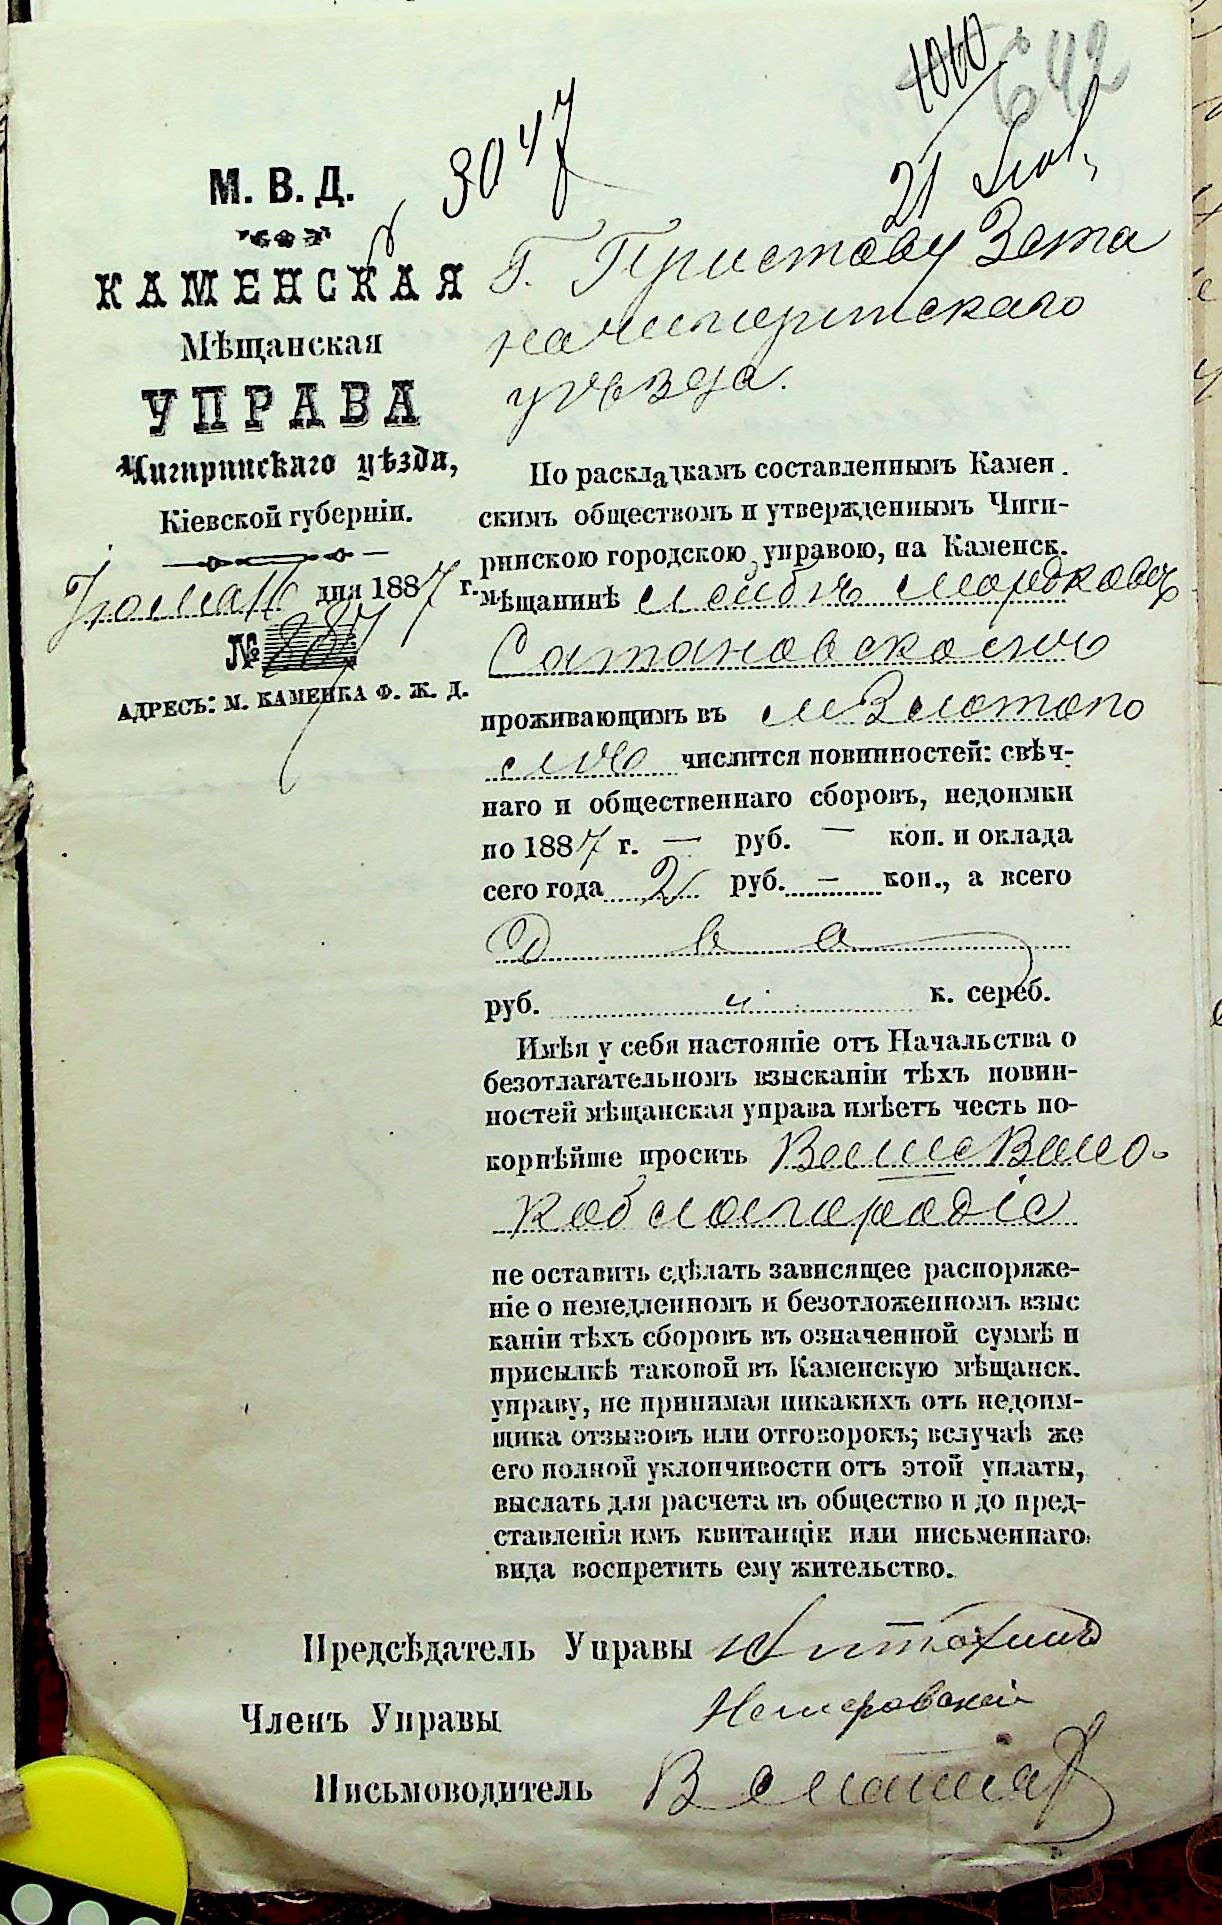 1010
642
21 Іюл.
№ 3047
М. В. Д.
КАМЕНСКАЯ
Мѣщанская
УПРАВА
Чигиринскаго уѣзда,
Кіевской губерніи.
16 дня 1887 г.
№ 287
АДРЕСЪ: М. КАМЕНКА Ф. Ж. Д.
Г. Приставу 3 ста
на Чигиринскаго
уѣзда.
По раскладкамъ составленнымъ Камен.
скимъ обществомъ и утвержденнымъ Чиги-
ринскою городскою управою, на Каменск.
мѣщанинѣ Лейбѣ Мордковѣ
Сатановскомъ
проживающимъ въ м Златопо
лѣ числится повинностей: свѣч-
наго и общественнаго сборовъ, недоимки
по 1887 г. — руб. — коп. и оклада
сего года 2 руб. — коп., а всего
Два
руб. к. сереб.
Имѣя у себя настояніе отъ Начальства о
безотлагательномъ взысканіи тѣхъ повин-
ностей мѣщанская управа имѣетъ честь по-
корнѣйше просить Ваше Высо-
коблагородіе
не оставить сдѣлать зависящее распоряже-
ніе о немедленномъ и безотложенномъ взыс
каніи тѣхъ сборовъ въ означенной суммѣ и
присылкѣ таковой въ Каменскую мѣщанск.
управу, не принимая никакихъ отъ недоим-
щика отзывовъ или отговорокъ; вслучаѣ же
его полной уклончивости отъ этой уплаты,
выслать для расчета въ общество и до пред-
ставленія имъ квитанціи или письменнаго
вида воспретить ему жительство.
Предсѣдатель Управы
Членъ Управы
Письмоводитель